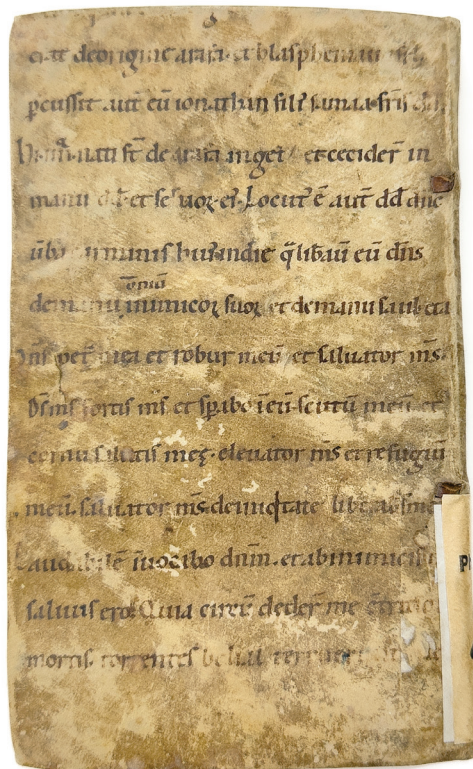 erat de origine arafa et blasphemau
pcussit aut eū ionathan fili samaa fris
nati st de arafa in get et cecider̄ in
manu dd et seruoꝝ eꝰ. Locutꝰ ē aut dd dn̄o
ūba carminis huꝰ in die q̄ libāū eū dn̄s
omniū
de manu inimicoꝝ suoꝝ et de manu saul et a
Dn̄s petra mea et robur meū et saluator ms
Ds ms fortis ms et spabo ī eū scutū meū et
cornu salutis meę. eleuator ms et refugiū
meū. saluator ms de iniqtate liberabis me
Laudabilē īuocabo dnm. et ab inimicis
saluus ero. Quia circūdeder̄ me ctritio
mortis. torrentes belial terruer̄
PI